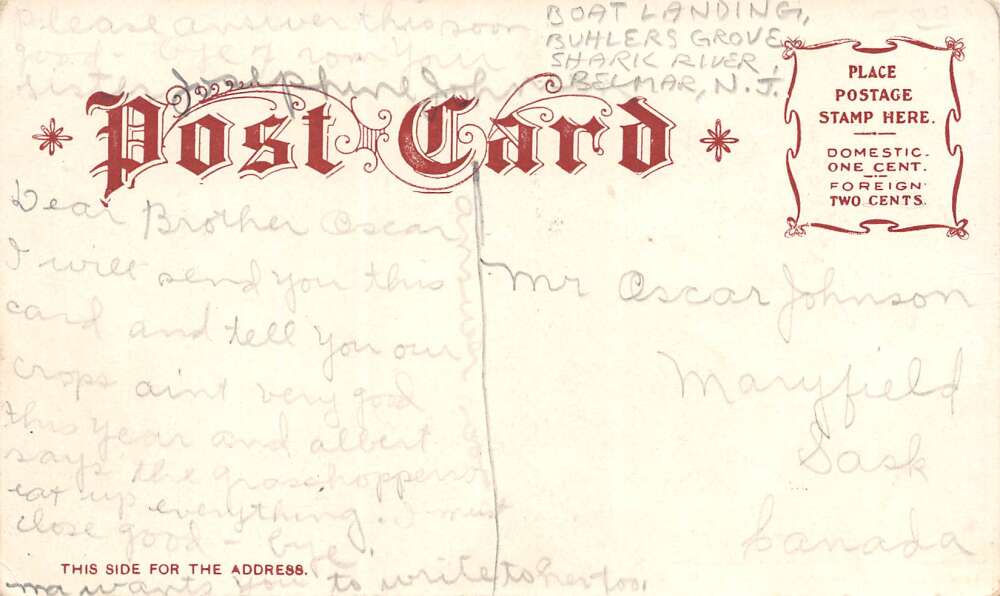 please answer this soon
good-bye from your
sister Josephine John
BOAT LANDING,
BUHLERS GROVE
SHARK RIVER
BELMAR, N. J.
Post Card
PLACE
POSTAGE
STAMP HERE.
DOMESTIC.
ONE CENT.
FOREIGN
TWO CENTS.
Dear Brother Oscar
I will send you this
card and tell you our
crops aint very good
this year and albert
says the grasshoppers
eat up everything. I must
close good-bye.
ma wants you to write to her too.
Mr Oscar Johnson
Maryfield
Sask
Canada
THIS SIDE FOR THE ADDRESS.